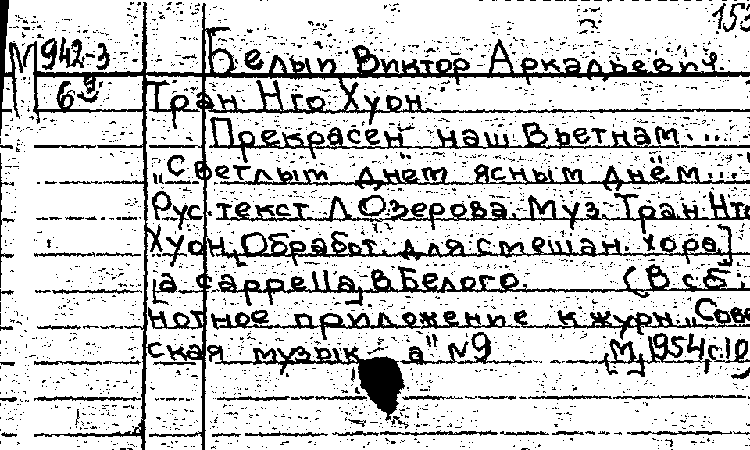 153
М 942-3 Белып Виктор Аркадьевич.
63 Тран Нго Хуон
Прекрасен наш Вьетнам...
„Светлым днём ясным днём..."
Рус. текст Л Озерова. Муз. Тран. Нго
Хуон, [Обработ. для смешан. хора]
[a cappella] В Белого. (В сб.:
нотное приложение к журн. „Сове
ская музык а" №9 [М, 1954, с.10